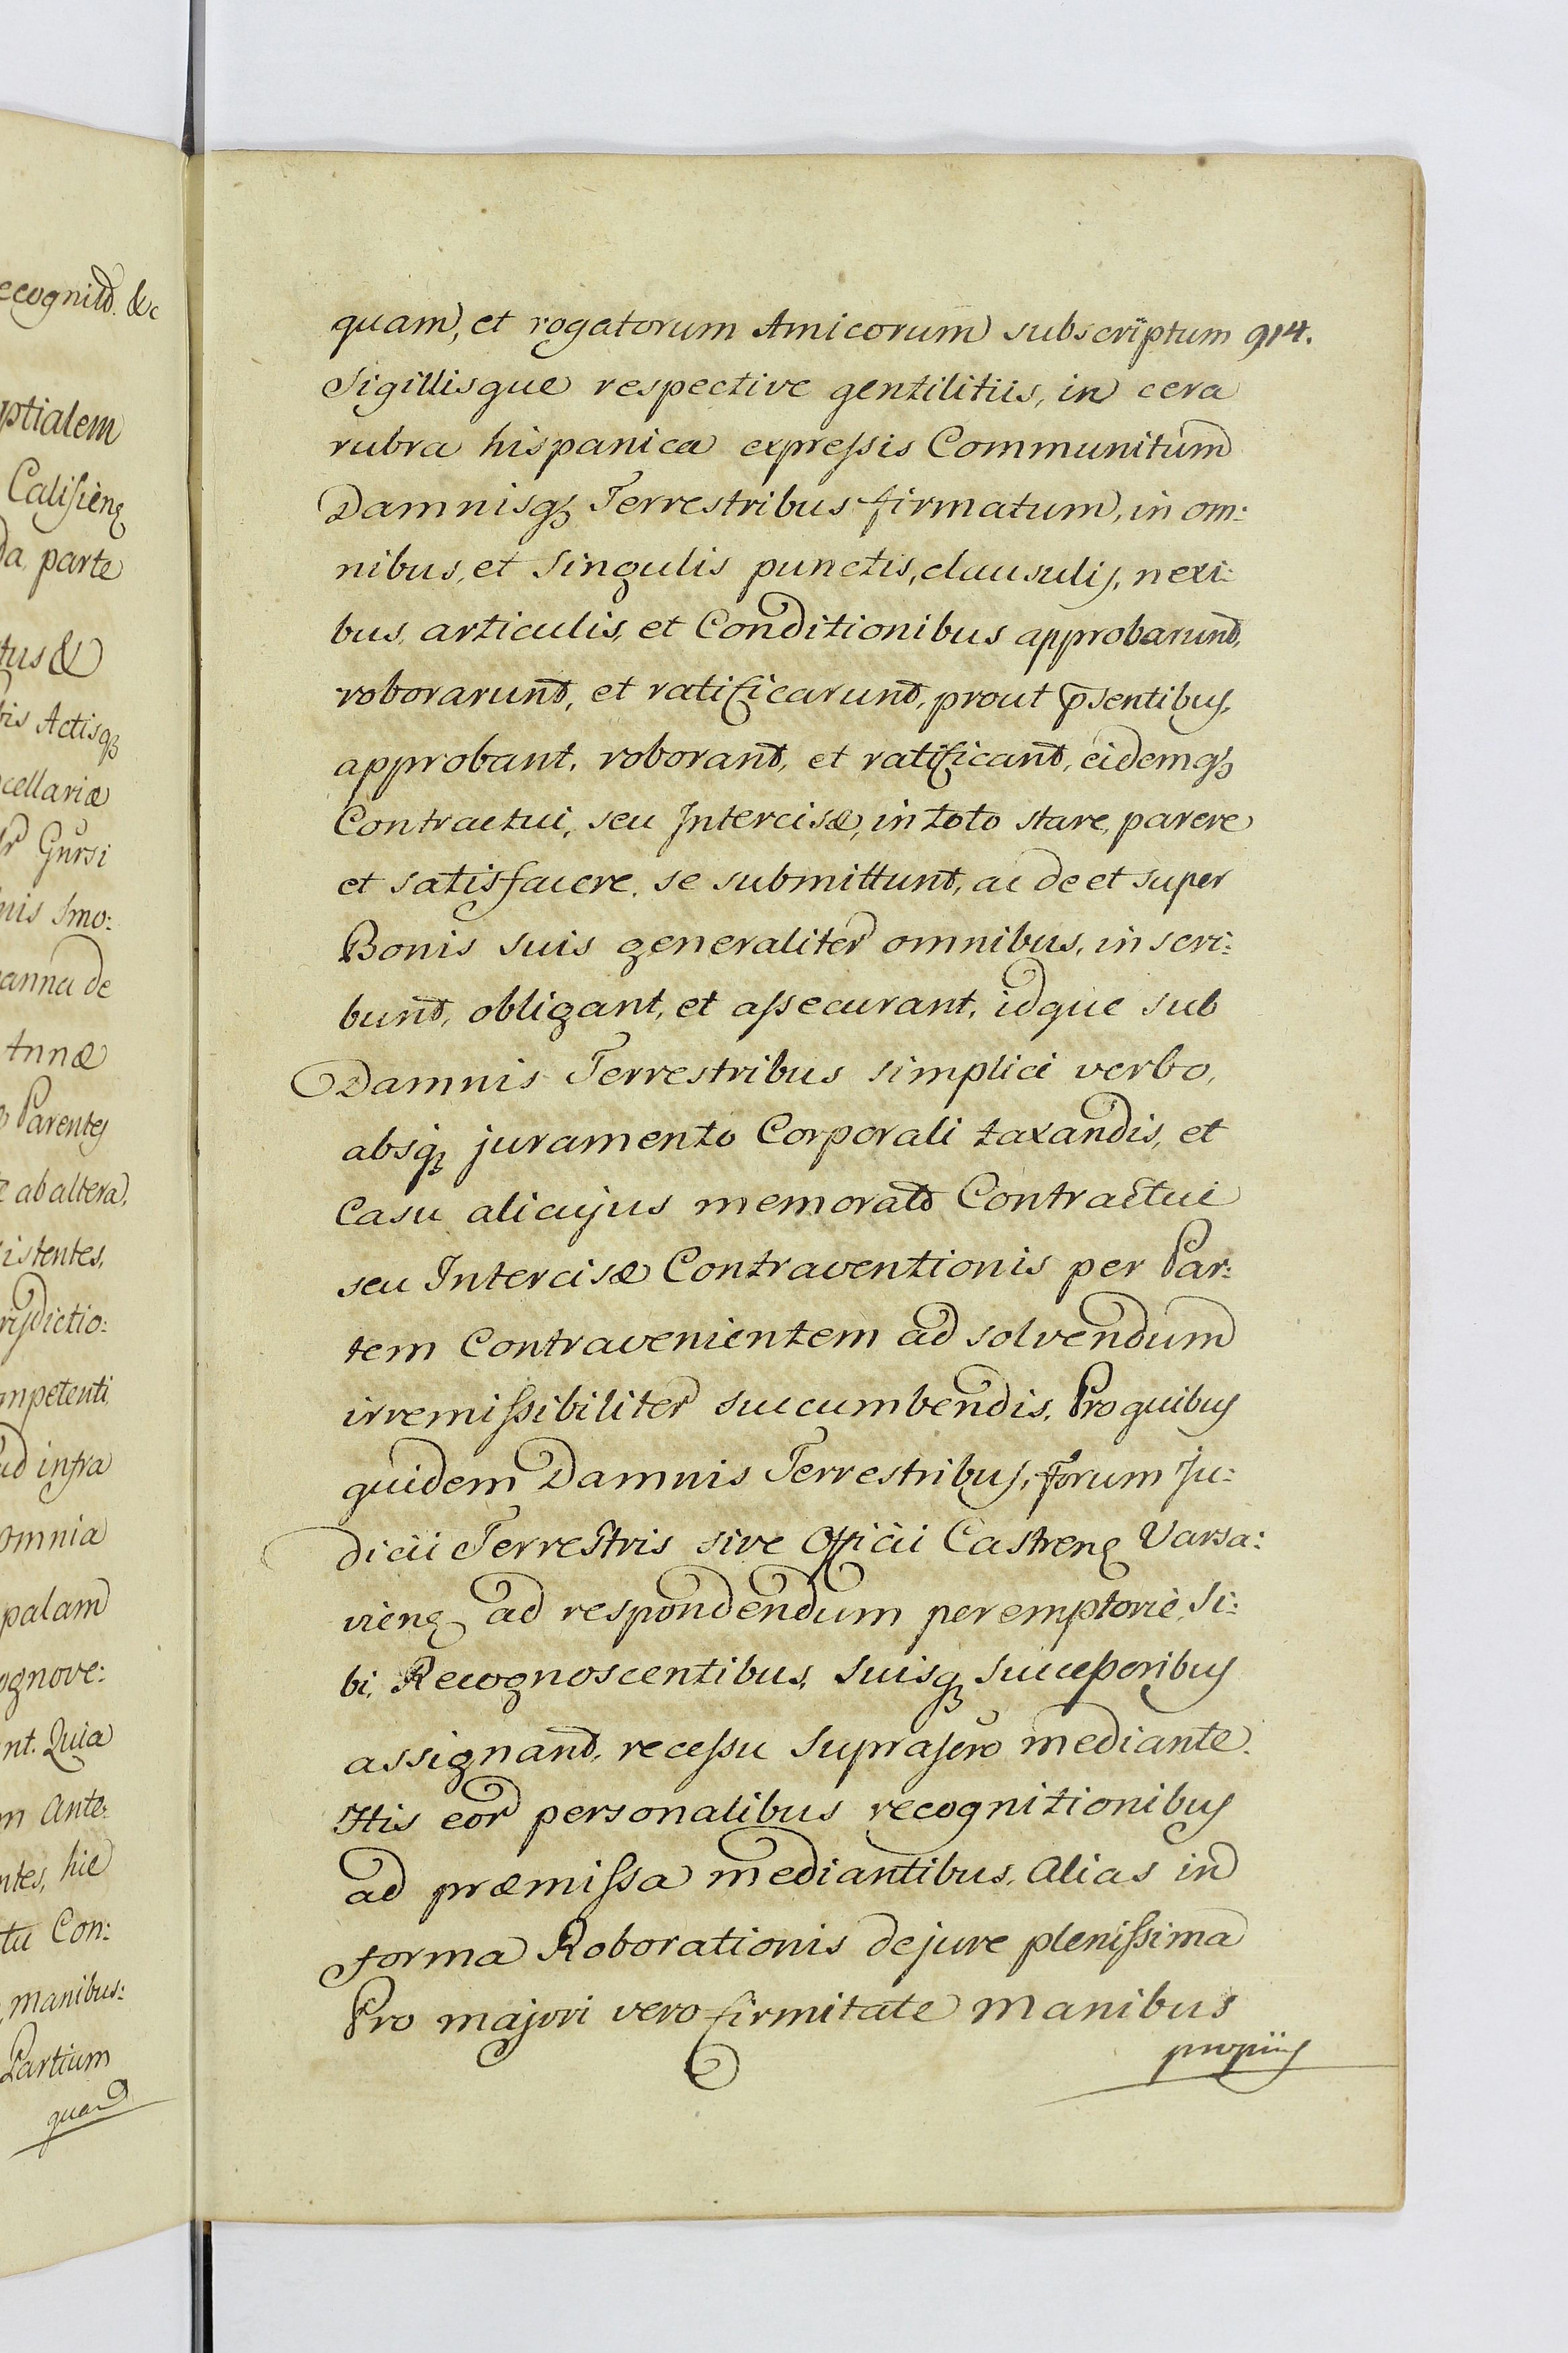 ecognito. &c
ptialem
Calisieng
da, parte
tus &
bis Actisq3
cellariæ
Gursi
nis Smo:
anna de
Annæ
Parentes
ab altera,
istentes,
risdictio:
mpetenti
ad infra
omnia
palam
ognove:
nt. Quia
m Ante:
ntes, hic
tu Con:
manibus:
Partium
quam
quam, et rogatorum Amicorum subscriptum 914.
Sigillisque respective gentilitiis, in cera
rubra hispanica expressis Communitum
Damnisq3 Terrestribus firmatum, in om:
nibus, et singulis punctis, clausulis, nexi:
bus, articulis, et Conditionibus approbarunt,
roborarunt, et ratificarunt, prout p̄sentibus,
approbant, roborant, et ratificant, eidemq3
Contractui, seu Intercisæ, in toto stare, parere
et satisfacere, se submittunt, ac de et super
Bonis suis generaliter omnibus, inscri:
bunt, obligant, et assecurant, idque sub
Damnis Terrestribus simplici verbo,
absq3 juramento Corporali taxandis, et
Casu alicujus memorato Contractui
seu Intercisæ Contraventionis per Par:
tem Contravenientem ad solvendum
irremissibiliter succumbendis. Pro quibus
quidem Damnis Terrestribus, forum Ju:
dicii Terrestris sive Officii Castreng Varsa:
vieng ad respondendum peremptorie, si:
bi, Recognoscentibus, suisq3 successoribus
assignant, recessu suprascro mediante.
His eor personalibus recognitionibus
ad præmissa mediantibus. Alias in
forma Roborationis de jure plenissima
Pro majori vero firmitate manibus
propiis